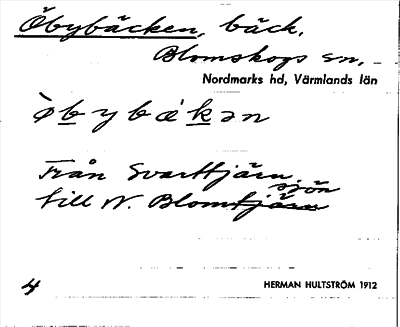 Öbybäcken, bäck,
Blomskogs sn,
Nordmarks hd, Värmlands län
ò̀bybä́kən
Från Svarttjärn
till N. Blomsjön
4
HERMAN HULTSTRÖM 1912